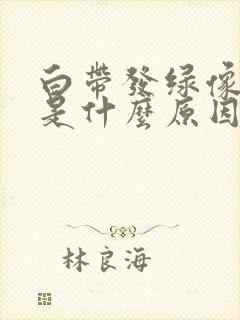 白帶發绿像
是什麼原因
林良海